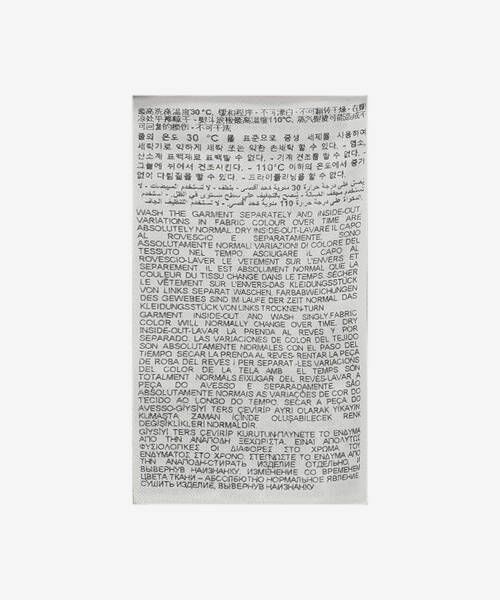 最高茶濯温度30°C, 缓和程序 - 不可漂白 - 不可翻转干燥 - 在
110°C, 蒸汽
- 不可干洗
물의 온도 30 °C 를 표준으로 중성 세제를 사용하여
세탁기로 약하게 세탁 또는 약한 손세탁 할 수 있다. - 염소,
산소계 표백제로 표백할 수 없다. - 기계 건조를 할 수 없다. -
그늘에 뉘어서 건조시킨다. - 110°C 이하의 온도에서 증기
없이 다림질을 할 수 있다. - 드라이클리닝을 할 수 없다.
WASH THE GARMENT SEPARATELY AND INSIDE-OUT.
VARIATIONS IN GARMENT COLOUR OVER TIME ARE
ABSOLUTELY NORMAL DRY INSIDE-OUT-LAVARE IL CAPO
AL ROVESCIO E SEPARATAMENTE. SONO
ASSOLUTAMENTE NORMALI VARIAZIONI DI COLORE DEL
TESSUTO NEL TEMPO. ASCIUGARE IL CAPO AL
ROVESCIO-LAVER LE VETEMENT SUR L'ENVERS ET
SEPAREMENT. IL EST ABSOLUMENT NORMAL QUE LA
COULEUR DU TISSU CHANGE DANS LE TEMPS. SÉCHER
LE VÊTEMENT SUR L'ENVERS-DAS KLEIDUNGSSTÜCK
VON LINKS SEPARAT WASCHEN. FARBABWEICHUNGEN
DES GEWEBES SIND IM LAUFE DER ZEIT NORMAL DAS
KLEIDUNGSSTÜCK VON LINKS TROCKNEN-TURN
GARMENT INSIDE-OUT AND WASH SINGLY.FABRIC
COLOR WILL NORMALLY CHANGE OVER TIME. DRY
INSIDE-OUT-LAVAR LA PRENDA AL REVÉS Y POR
SEPARADO. LAS VARIACIONES DE COLOR DEL TEJIDO
SON ABSOLUTAMENTE NORMALES CON EL PASO DEL
TIEMPO SECAR LA PRENDA AL REVÉS-RENTAR LA PEÇA
DE ROBA DEL REVES I PER SEPARAT-LES VARIACIONS
DEL COLOR DE LA TELA AMB EL TEMPS SON
TOTALMENT NORMALS.EIXUGAR DEL REVES-LAVAR A
PEÇA DO AVESSO E SEPARADAMENTE SÃO
ABSOLUTAMENTE NORMAIS AS VARIAÇÕES DE COR DO
TECIDO AO LONGO DO TEMPO. SECAR A PEÇA DO
AVESSO-GİYSİYİ TERS ÇEVİRİP AYRI OLARAK YIKAYIN
KUMAŞTA ZAMAN İÇİNDE OLUŞABİLECEK RENK
DEĞİŞİKLİKLERİ NORMALDİR.
GİYSİYİ TERS ÇEVİRİP KURUTUN-ΠΛΥΝΕΤΕ ΤΟ ΕΝΔΥΜΑ
ΑΠΟ ΤΗΝ ΑΝΑΠΟΔΗ ΞΕΧΩΡΙΣΤΑ. ΕΙΝΑΙ ΑΠΟΛΥΤΩΣ
ΦΥΣΙΟΛΟΓΙΚΕΣ ΟΙ ΔΙΑΦΟΡΕΣ ΣΤΟ ΧΡΩΜΑ ΤΟΥ
ΕΝΔΥΜΑΤΟΣ ΣΤΟ ΧΡΟΝΟ. ΣΤΕΓΝΩΣΤΕ ΤΟ ΕΝΔΥΜΑ ΑΠΟ
ΤΗΝ ΑΝΑΠΟΔΗ-СТИРАТЬ ИЗДЕЛИЕ ОТДЕЛЬНО, И
ВЫВЕРНУВ НАИЗНАНКУ. ИЗМЕНЕНИЕ СО ВРЕМЕНЕМ
ЦВЕТА ТКАНИ – АБСОЛЮТНО НОРМАЛЬНОЕ ЯВЛЕНИЕ
СУШИТЬ ИЗДЕЛИЕ, ВЫВЕРНУВ НАИЗНАНКУ